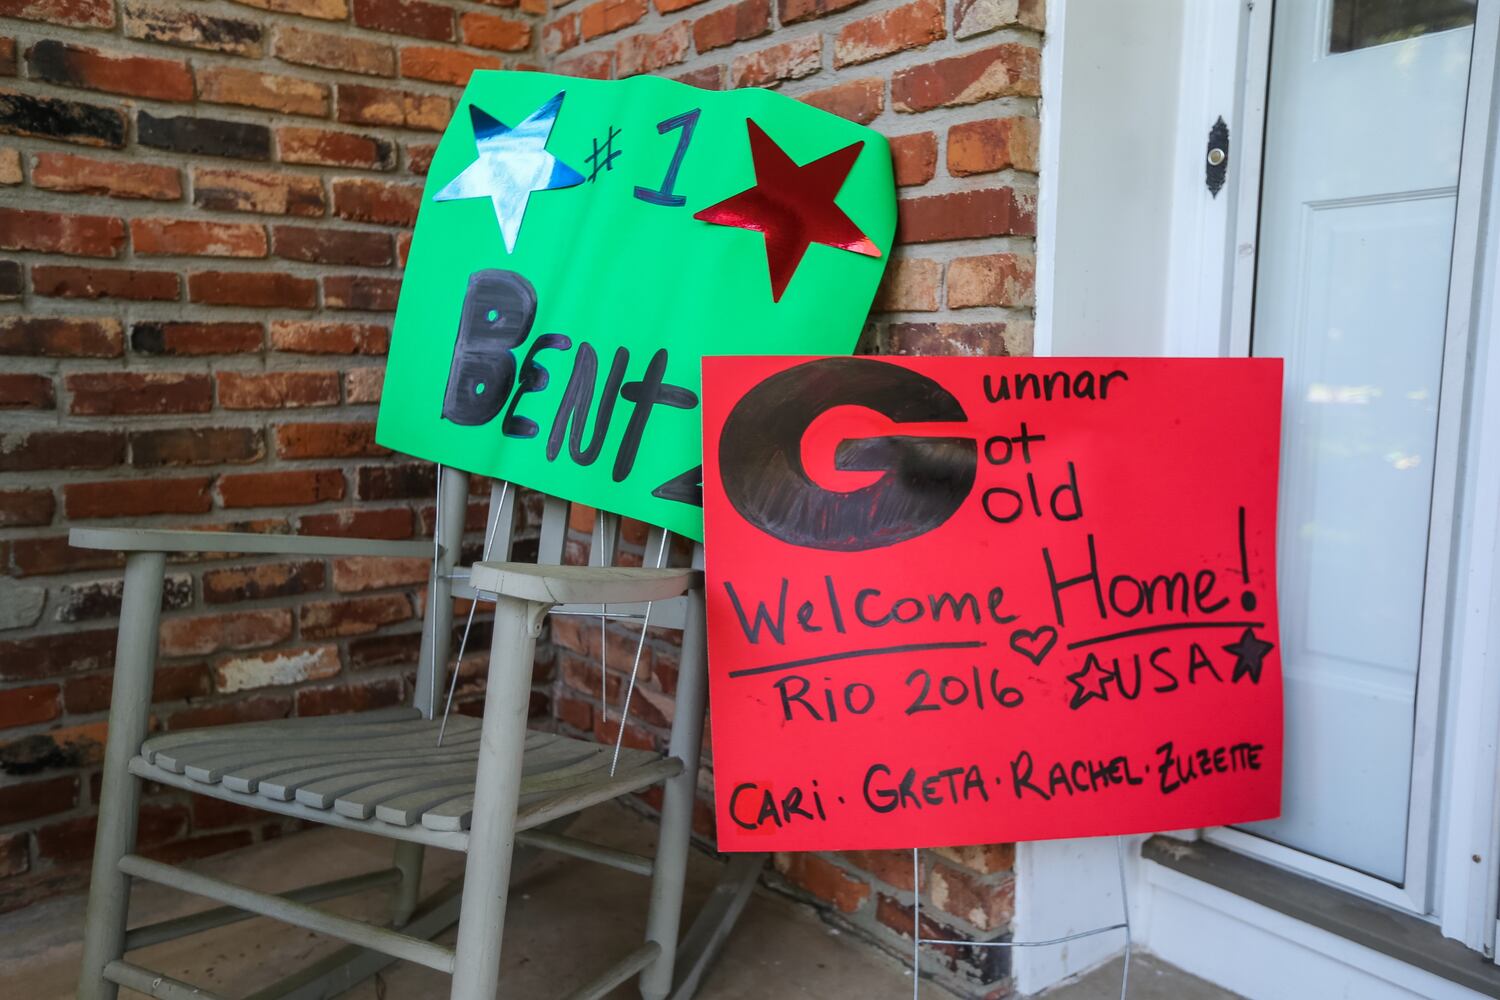 # 1
BENtZ
Gunnar
Got
Gold
Welcome Home!
Rio 2016 USA
CARi · GRETA · RACHEL · ZUZETTE